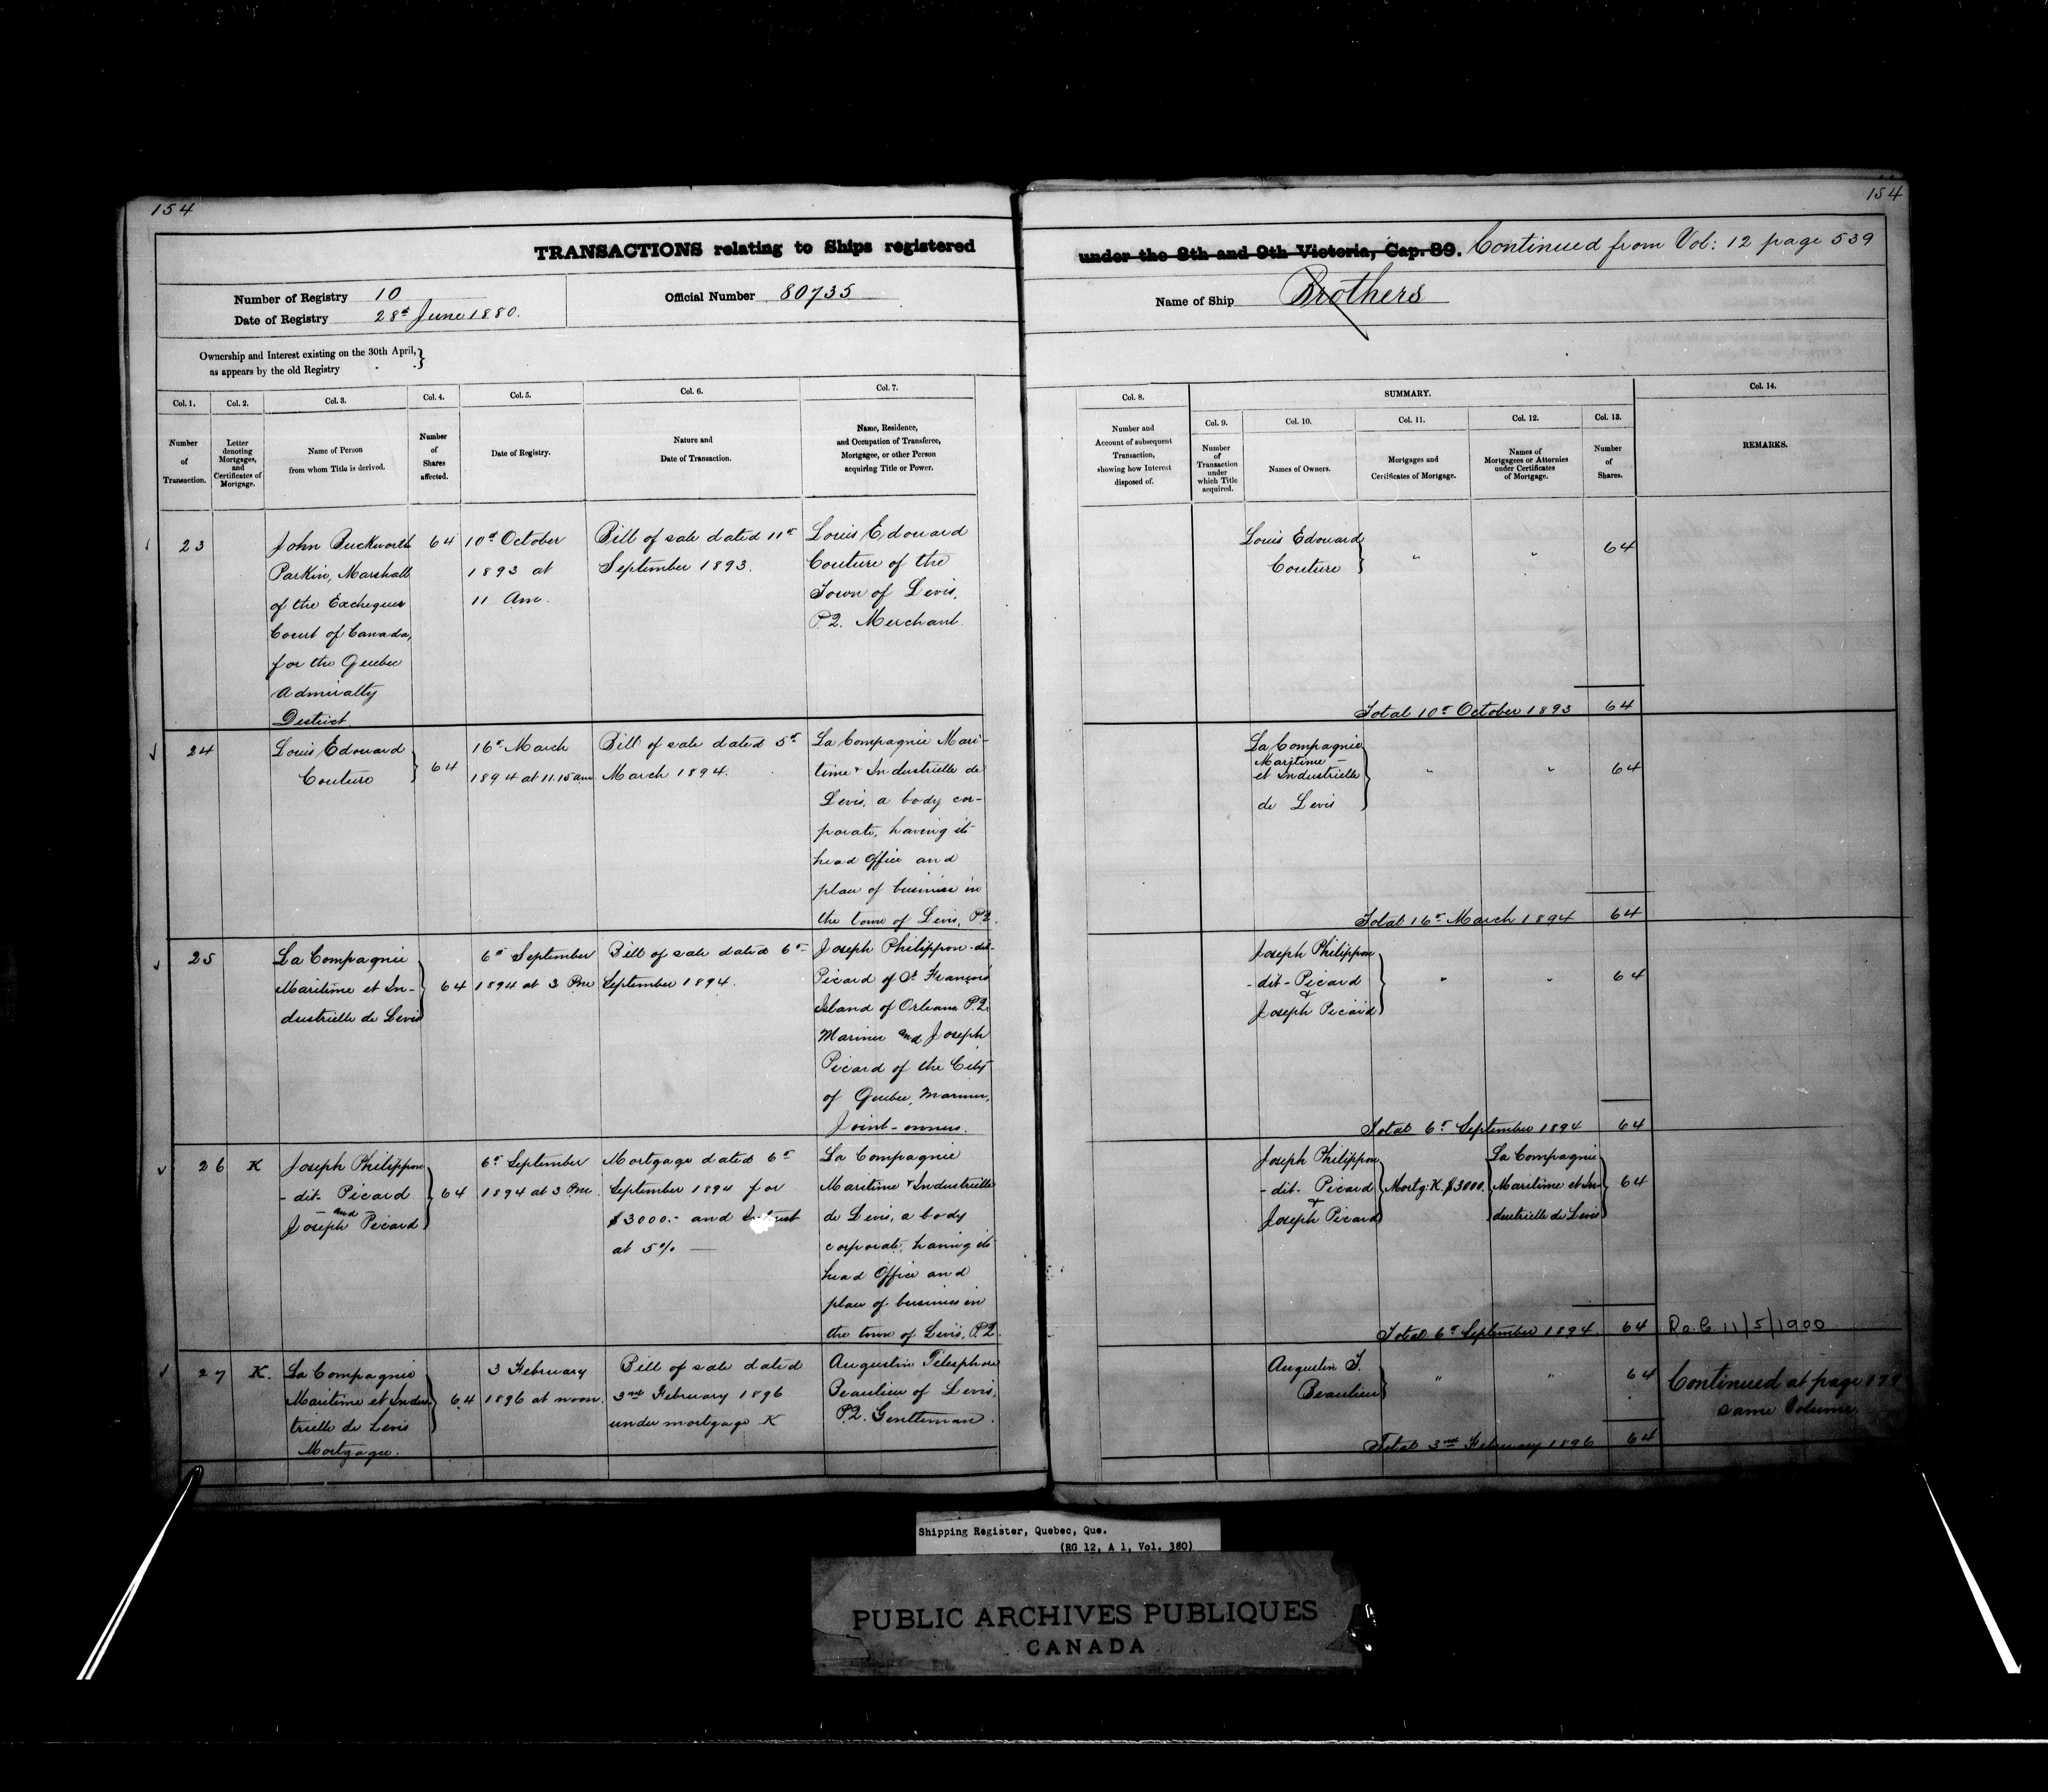 154
154
TRANSACTIONS relating to Ships registered under the 8th and 9th Victoria, Cap. 89. Continued from Vol: 12 page 539
Number of Registry 10
Date of Registry 28th June 1880.
Official Number 80735
Name of Ship Brothers
Ownership and Interest existing on the 30th April,
as appears by the old Registry
Col. 1.
Number
of
Transaction.
Col. 2.
Letter
denoting
Mortgages,
and
Certificates of
Mortgage.
Col. 3.
Name of Person
from whom Title is derived.
Col. 4.
Number
of
Shares
affected.
Col. 5.
Date of Registry.
Col. 6.
Nature and
Date of Transaction.
Col. 7.
Name, Residence,
and Occupation of Transferee,
Mortgagee, or other Person
acquiring Title or Power.
Col. 8.
Number and
Account of subsequent
Transaction,
showing how Interest
disposed of.
SUMMARY.
Col. 9.
Number
of
Transaction
under
which Title
acquired.
Col. 10.
Names of Owners.
Col. 11.
Mortgages and
Certificates of Mortgage.
Col. 12.
Names of
Mortgagees or Attornies
under Certificates
of Mortgage.
Col. 13.
Number
of
Shares.
Col. 14.
REMARKS.
23
John Buckworth
Parkin, Marshall
of the Exchequer
Court of Canada,
for the Quebec
Admiralty
District.
64
10th October
1893 at
11 Am.
Bill of sale dated 11th
September 1893.
Louis Edouard
Couture of the
Town of Levis,
P.Q. Merchant.
Louis Edouard
Couture
"
"
64
Total 10th October 1893 64
24
Louis Edouard
Couture
64
16th March
1894 at 11.15 am
Bill of sale dated 5th
March 1894.
La Compagnie Mari-
time & Industrielle de
Levis, a body cor-
porate, having its
head Office and
place of business in
the town of Levis, P.Q.
La Compagnie
Maritime
et Industrielle
de Levis
"
"
64
Total 16th March 1894 64
25
La Compagnie
Maritime et In-
dustrielle de Levis
64
6th September
1894 at 3 Pm
Bill of sale dated 6th
September 1894.
Joseph Philippon dit-
Picard of St François
Island of Orleans P.Q.
Mariner and Joseph
Picard of the City
of Quebec, Mariner,
Joint-owners.
Joseph Philippon
-dit- Picard
&
Joseph Picard
"
"
64
Total 6th September 1894 64
26
K
Joseph Philippon
- dit- Picard
- and -
Joseph Picard
64
6th September
1894 at 3 Pm.
Mortgage dated 6th
September 1894 for
$3000.- and Interest
at 5% —
La Compagnie
Maritime & Industrielle
de Levis, a body
corporate, having its
head Office and
place of business in
the town of Levis, P.Q.
Joseph Philippon
- dit- Picard
&
Joseph Picard
Mortg: K. $3000.
La Compagnie
Maritime et In-
dustrielle de Levis
64
Total 6th September 1894. 64
Ro. C. 11/5/1900
27
K.
La Compagnie
Maritime et Indus-
trielle de Levis
Mortgagee.
64
3 February
1896 at noon.
Bill of sale dated
3rd February 1896
under mortgage K
Augustin Télesphore
Beaulieu of Levis,
P.Q. Gentleman.
Augustin T.
Beaulieu
"
"
64
Total 3rd February 1896 64
Continued at page
same Volume.
Shipping Register, Quebec, Que.
(RG 12, A 1, Vol. 380)
PUBLIC ARCHIVES PUBLIQUES
CANADA